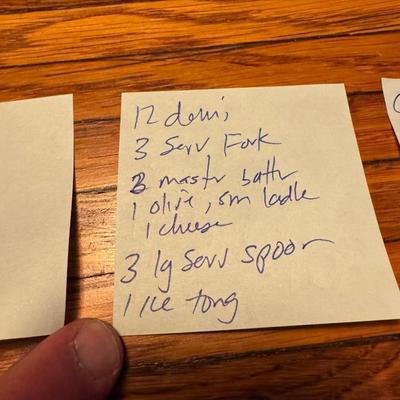 12 demi
3 Serv Fork
2 mastr battr
1 olive, sm ladle
1 cheese
3 lg serv spoon
1 ice tong